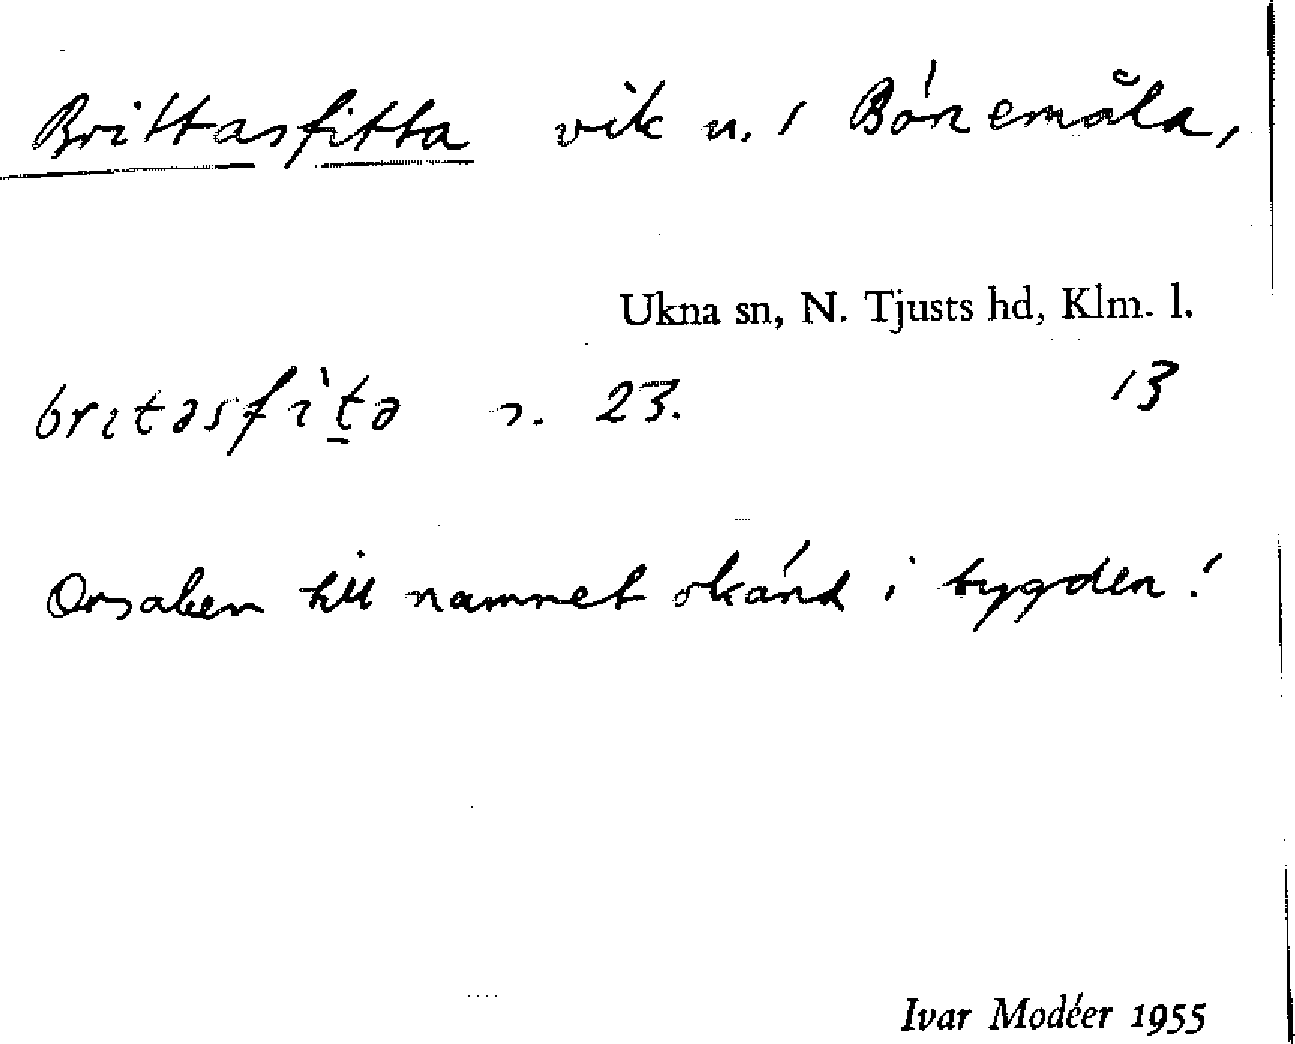 Brittasfitta vik n. i Bönemåla,
Ukna sn, N. Tjusts hd, Klm. l.
britəsfìt̠ə n. 23. 13
Orsaken till namnet okänd i bygden!
Ivar Modéer 1955